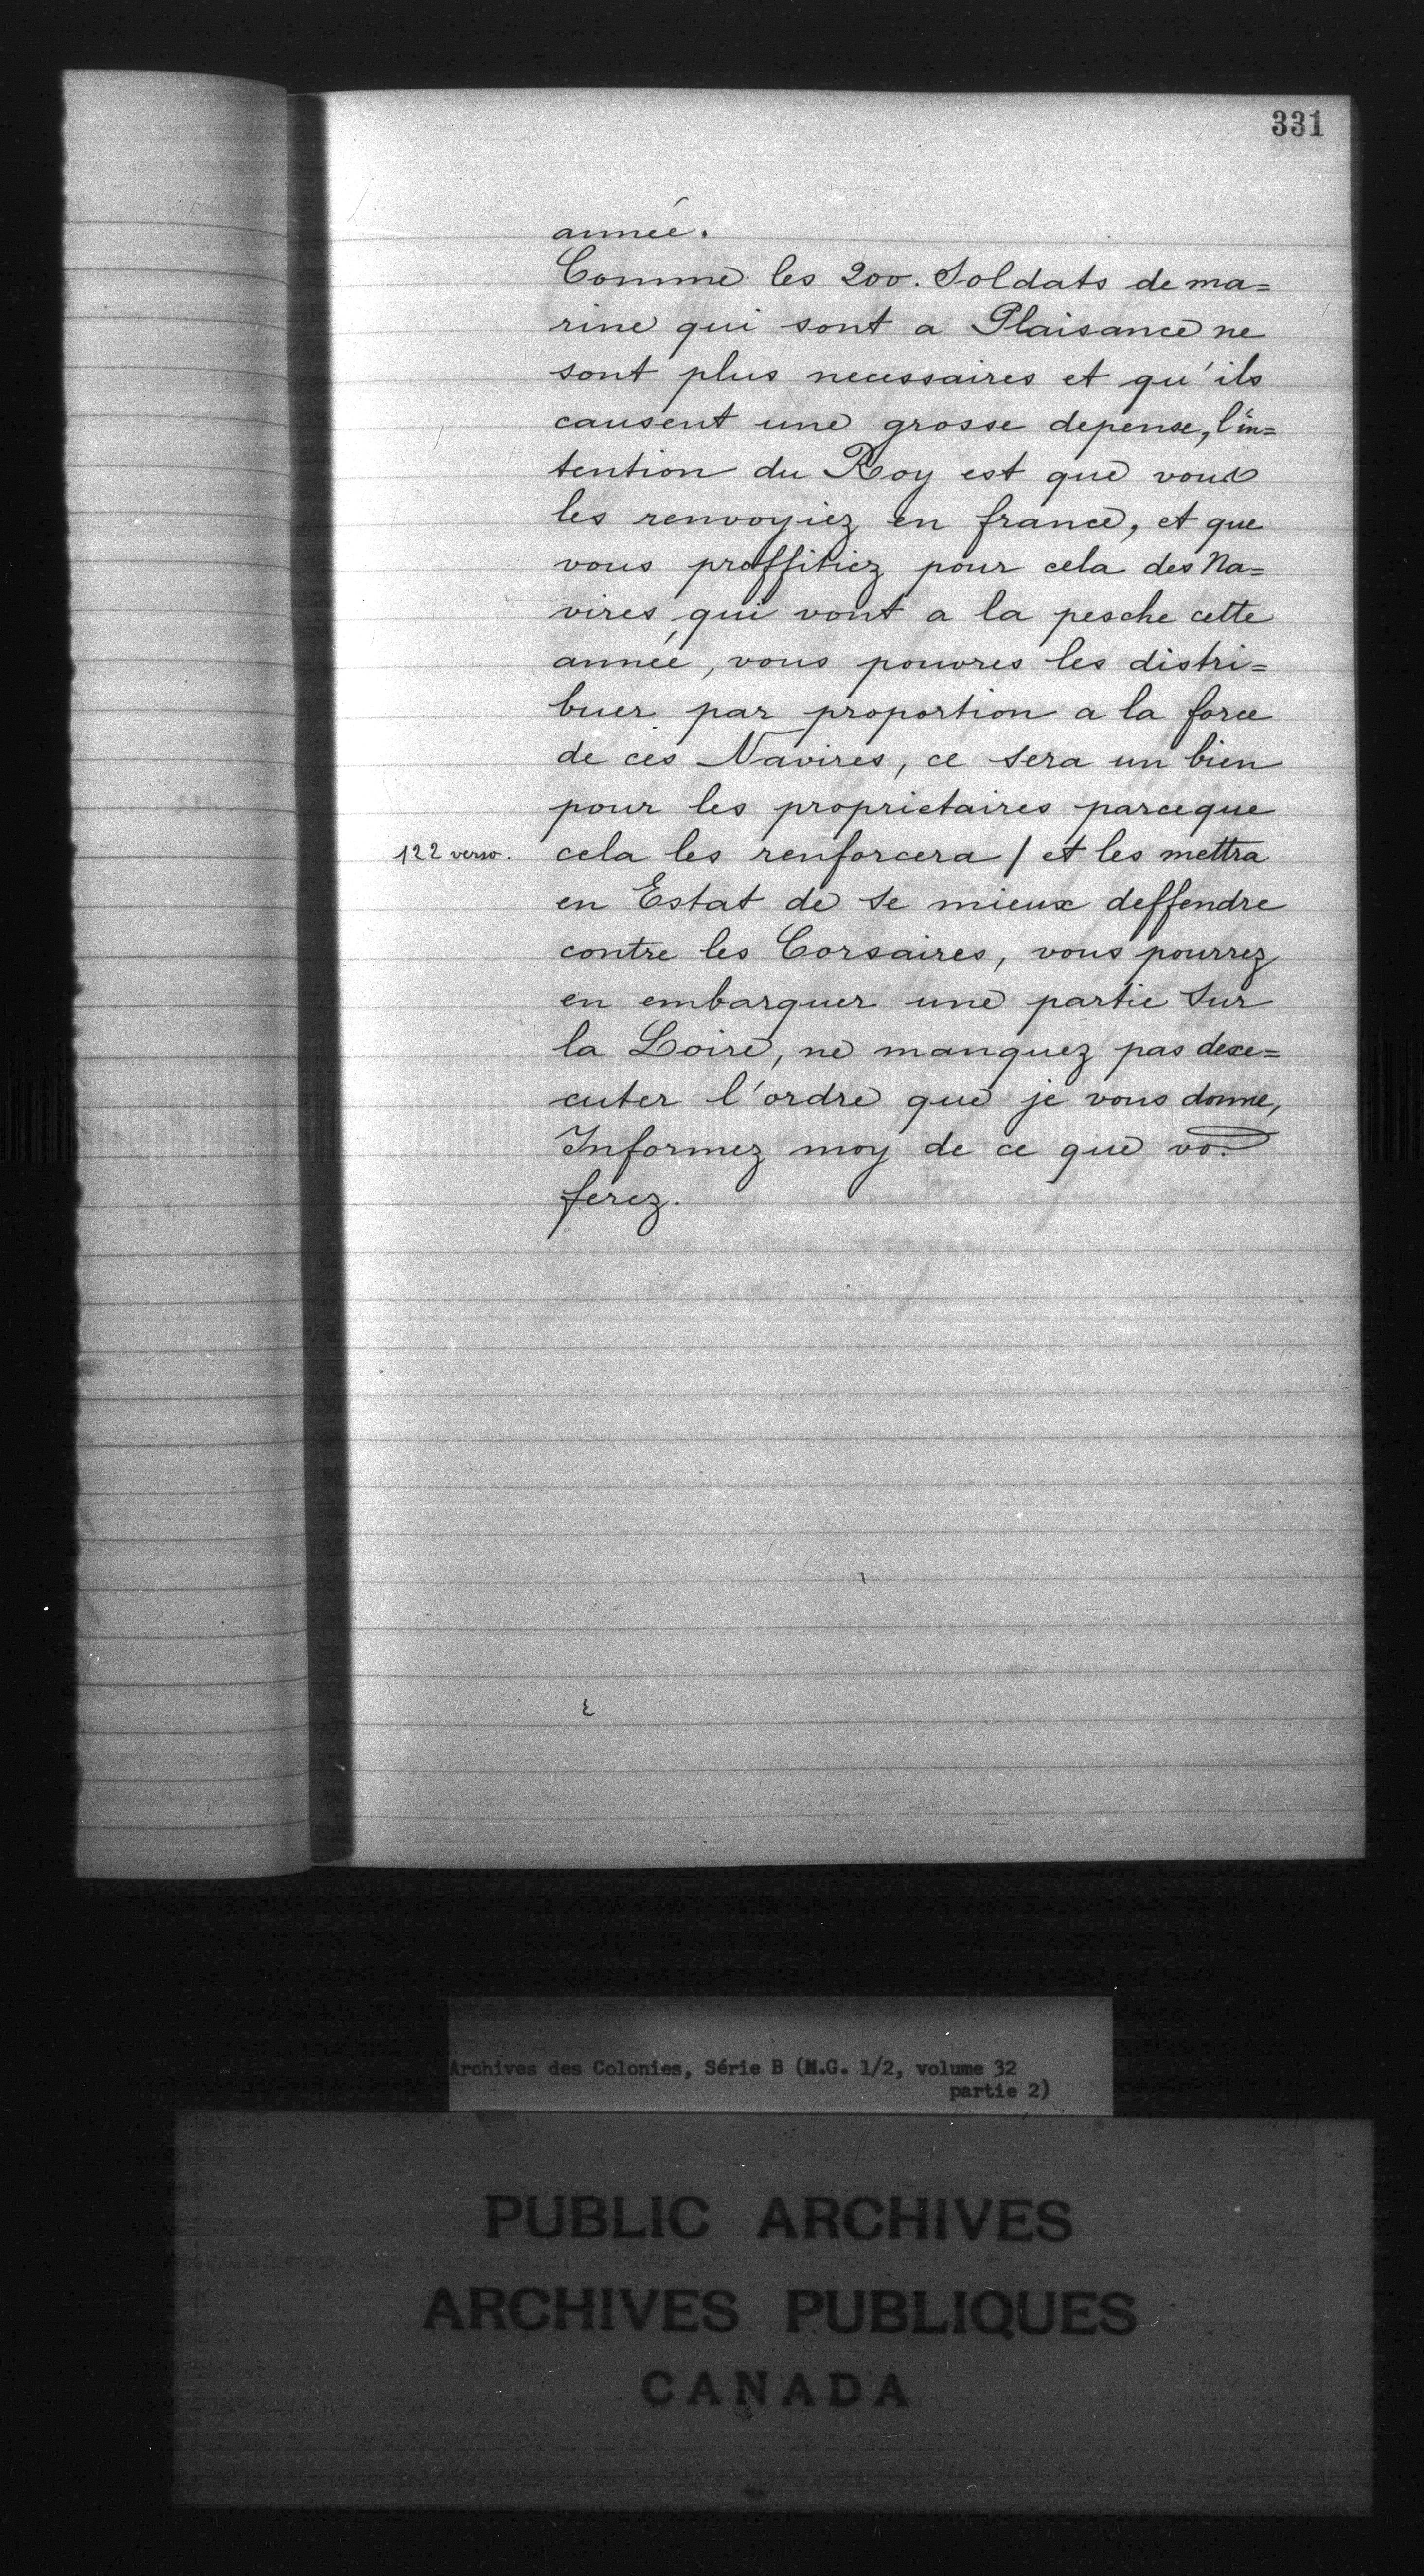 331
année.
Comme les 200. Soldats de ma=
rine qui sont a Plaisance ne
sont plus necessaires et qu'ils
causent une grosse depense, l'in=
tention du Roy est que vous
les renvoyiez en france, et que
vous proffitiez pour cela des Na=
vires qui vont a la pesche cette
année, vous pouvres les distri=
buer par proportion a la force
de ces Navires, ce sera un bien
pour les proprietaires parceque
122 verso. cela les renforcera / et les mettra
en Estat de se mieux deffendre
contre les Corsaires, vous pourrez
en embarquer une partie sur
la Loire, ne manquez pas dexe=
cuter l'ordre que je vous donne,
Informez moy de ce que vo.
ferez.
Archives des Colonies, Série B (M.G. 1/2, volume 32
partie 2)
PUBLIC ARCHIVES
ARCHIVES PUBLIQUES
CANADA